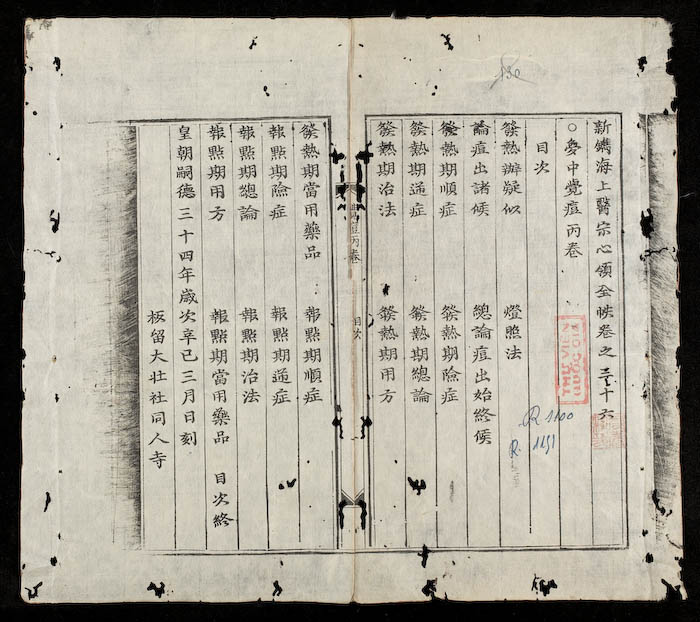 130
新鐫海上醫宗心領全帙卷之三十六
○夢中覺痘丙卷
目次
發熱辨疑似 燈照法
論痘出諸候 總論痘出始終候
發熱期順症 發熱期險症
發熱期逆症 發熱期總論
發熱期治法 發熱期用方
痘丙卷 目次
發熱期當用藥品 報點期順症
報點期險症 報點期逆症
報點期總論 報點期治法
報點期用方 報點期當用藥品 目次終
皇朝嗣德三十四年歲次辛巳三月日刻
板留大壯社同人寺
THƯ VIỆN
QUỐC GIA
R.1100
R.1151